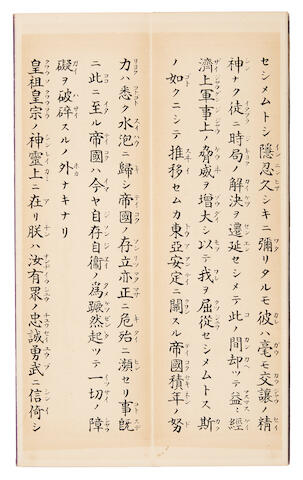 セシメムトシ隱忍久シキニ彌リタルモ彼ハ毫モ交讓ノ精
神ナク徒ニ時局ノ解決ヲ遷延セシメテ此ノ間却ツテ益〻經
濟上軍事上ノ脅威ヲ增大シ以テ我ヲ屈從セシメムトス斯
ノ如クニシテ推移セムカ東亞安定ニ關スル帝國積年ノ努
力ハ悉ク水泡ニ歸シ帝國ノ存立亦正ニ危殆ニ瀕セリ事旣
ニ此ニ至ル帝國ハ今ヤ自存自衞ノ爲蹶然起ツテ一切ノ障
礙ヲ破碎スルノ外ナキナリ
皇祖皇宗ノ神靈上ニ在リ朕ハ汝有眾ノ忠誠勇武ニ信倚シ